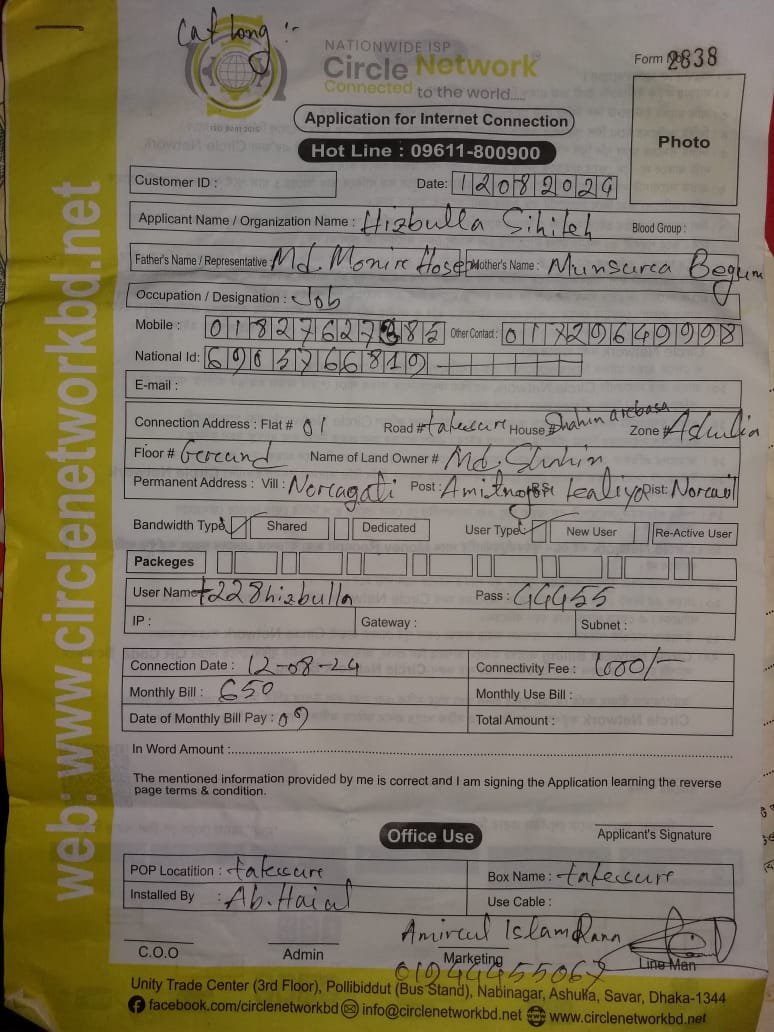 Cat long :-
NATIONWIDE ISP
Circle Network
Connected to the world.....
ISO 9001:2015
Form No 2838
Application for Internet Connection
Hot Line : 09611-800900
Photo
Customer ID :
Date: 12082024
Applicant Name / Organization Name : Hizbulla
Blood Group :
Father's Name / Representative Md. Monir Hosen Mother's Name : Begum
Occupation / Designation : Job
Mobile : 01827627385 Other Contact : 01729649998
National Id: 6905766819
E-mail :
Connection Address : Flat # 01 Road # House # Shahin Zone # Ashulia
Floor # Name of Land Owner # Md. Shahin
Permanent Address : Vill : Post : Dist:
Bandwidth Type: Shared Dedicated User Type: New User Re-Active User
Packeges
User Name t228hizbulla Pass : 44455
IP : Gateway : Subnet :
Connection Date : 12-08-24 Connectivity Fee : 1000/-
Monthly Bill : 650 Monthly Use Bill :
Date of Monthly Bill Pay : 09 Total Amount :
In Word Amount :
The mentioned information provided by me is correct and I am signing the Application learning the reverse
page terms & condition.
Office Use
Applicant's Signature
POP Locatition : Box Name :
Installed By : Use Cable :
C.O.O
Admin
Marketing
Line Man
Unity Trade Center (3rd Floor), Pollibiddut (Bus Stand), Nabinagar, Ashulia, Savar, Dhaka-1344
facebook.com/circlenetworkbd info@circlenetworkbd.net www.circlenetworkbd.net
web: www.circlenetworkbd.net